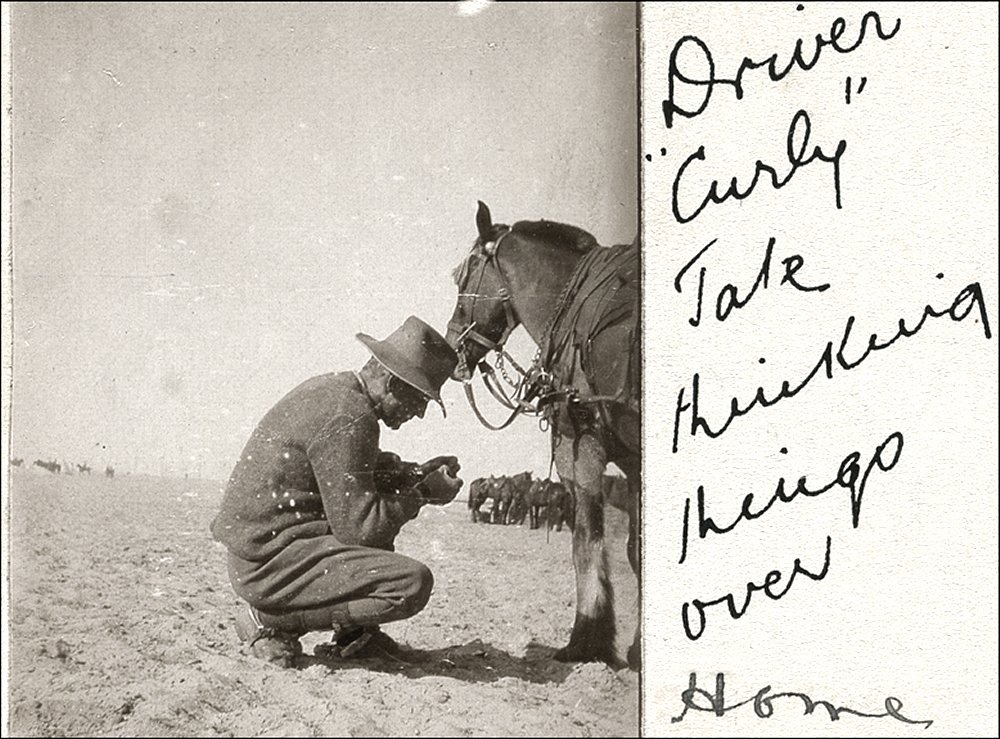 Driver
"Curly"
Tate
thinking
things
over
Home